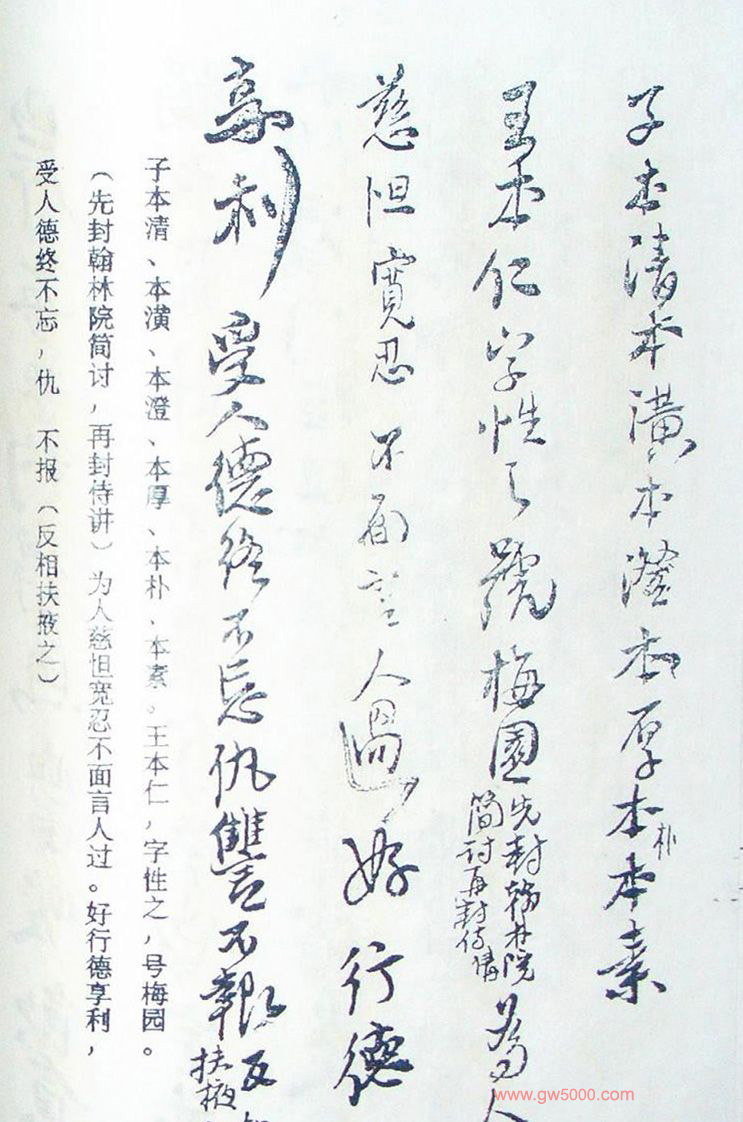 子本清本潢本澄本厚本朴本素
王本仁字性之號梅園先封翰林院简讨再封侍講為人
慈怛寬忍不面言人過好行德
享利受人德终不忘仇讐不報反相扶掖
子本清、本潢、本澄、本厚、本朴、本素。王本仁，字性之，号梅园。
（先封翰林院简讨，再封侍讲）为人慈怛宽忍不面言人过。好行德享利，
受人德终不忘，仇　不报（反相扶掖之）
www.gw5000.com